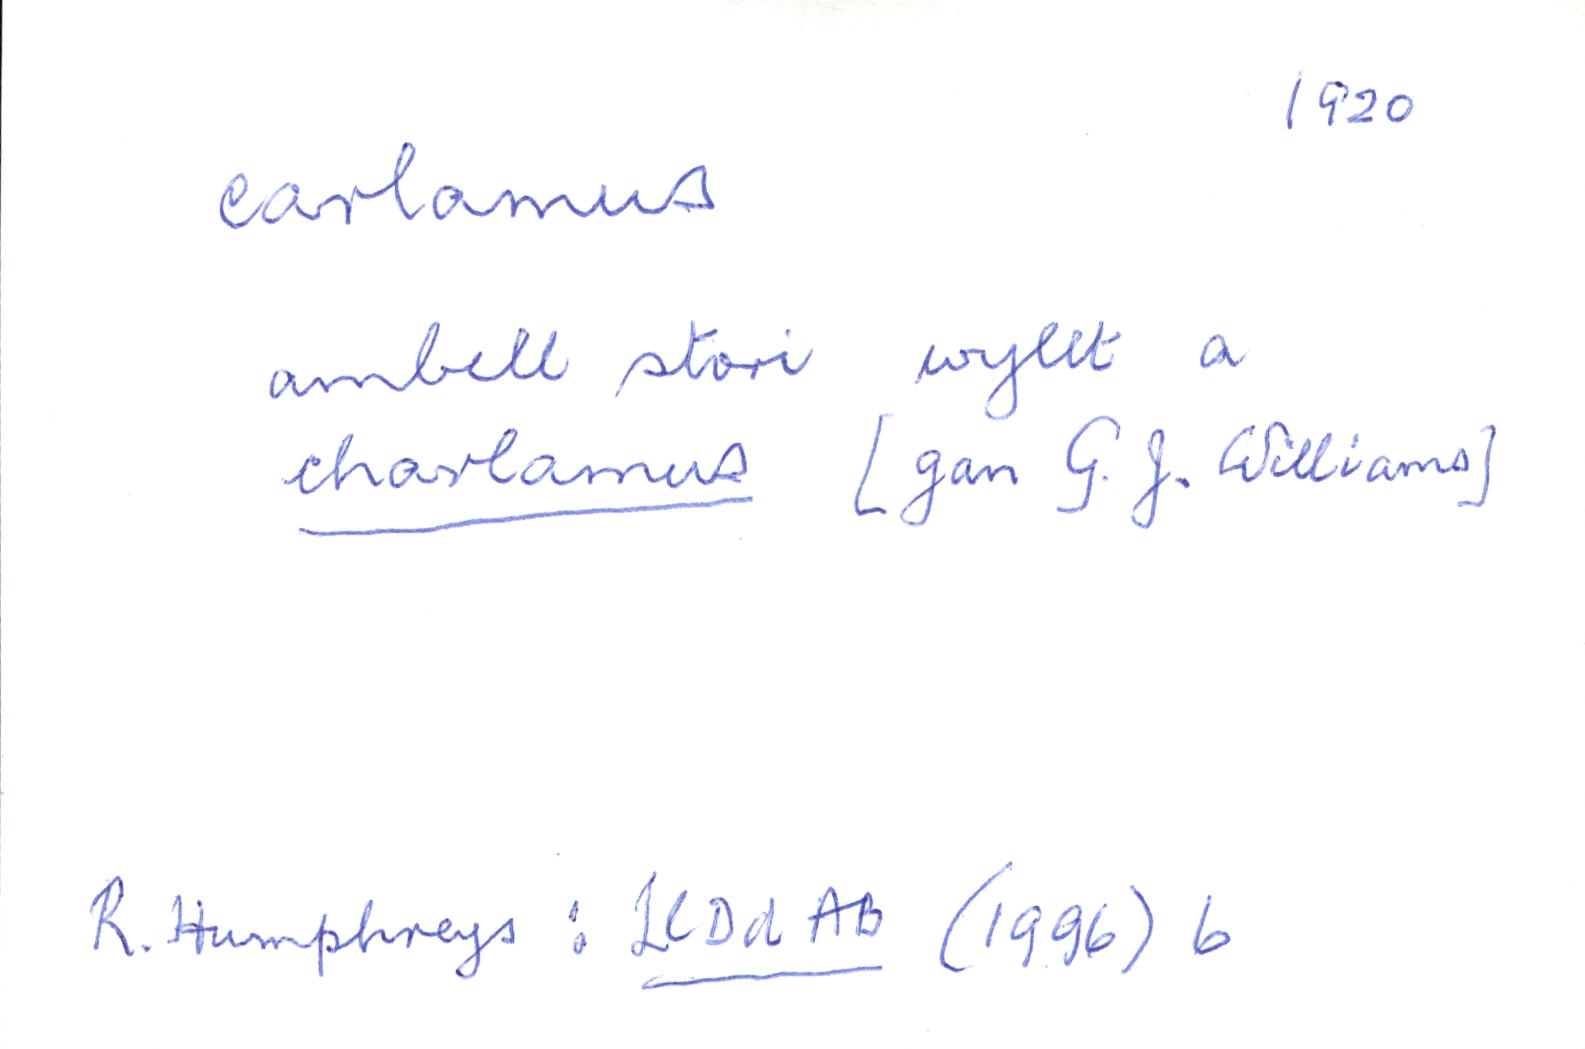 1920
carlamus
ambell stori wyllt a
charlamus [gan G. J. Williams]
R. Humphreys : LlDdAB (1996) 6